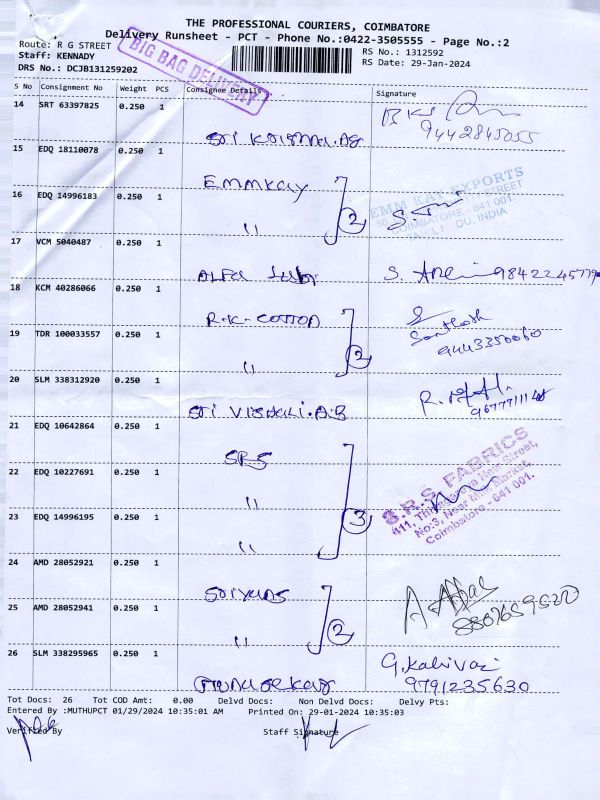 THE PROFESSIONAL COURIERS, COIMBATORE
Delivery Runsheet - PCT - Phone No.:0422-3505555 - Page No.:2
Route: R G STREET
RS No.: 1312592
Staff: KENNADY
RS Date: 29-Jan-2024
DRS No.: DCJB131259202
BIG BAG DELIVERY
S No Consignment No Weight PCS Consignee Details Signature
14 SRT 63397825 0.250 1
9442845055
Sri Krishna.AG
15 EDQ 18110078 0.250 1
Emmkay
EMM KAY EXPORTS
COIMBATORE - 641 001.
INDIA
16 EDQ 14996183 0.250 1
" 2
17 VCM 5040487 0.250 1
ALFA
S. 9842245779
18 KCM 40286066 0.250 1
R.K-COTTON
Santhosh
9443350060
19 TDR 100033557 0.250 1
" 2
20 SLM 338312920 0.250 1
Sri VISHALI.A.B
R.
9677711148
21 EDQ 10642864 0.250 1
SRS
S.R.S FABRICS
411, New Street,
No:3, Near Mill Market,
Coimbatore - 641 001.
22 EDQ 10227691 0.250 1
"
23 EDQ 14996195 0.250 1
" 3
24 AMD 28052921 0.250 1
8807659520
25 AMD 28052941 0.250 1
" 2
26 SLM 338295965 0.250 1
Gunasekar
G.Kalivani
9791235630
Tot Docs: 26 Tot COD Amt: 0.00 Delvd Docs: Non Delvd Docs: Delvy Pts:
Entered By :MUTHUPCT 01/29/2024 10:35:01 AM Printed On: 29-01-2024 10:35:03
Verified By Staff Signature